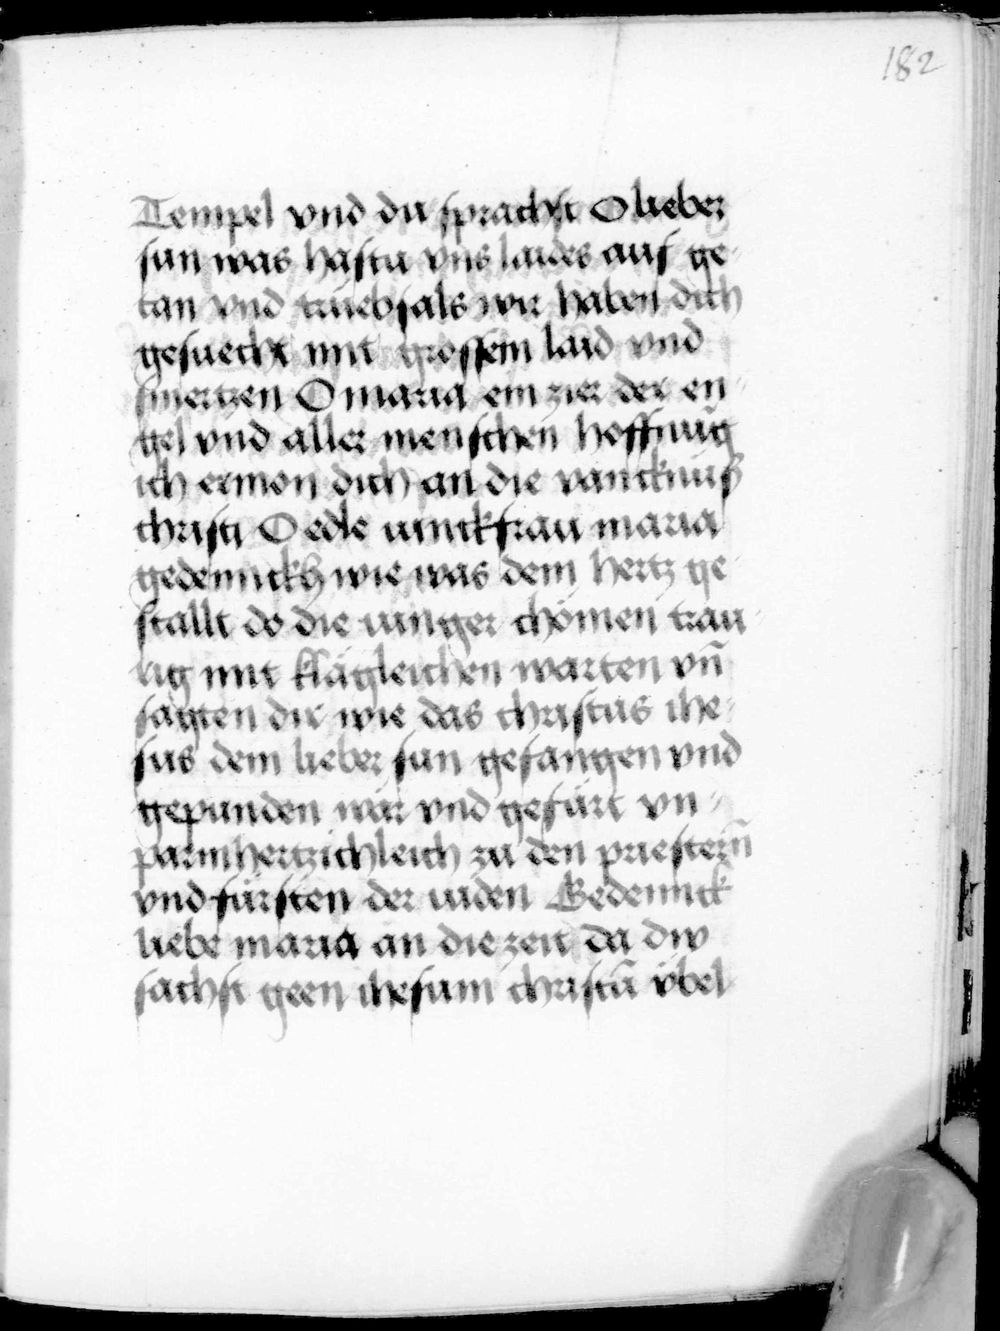 182
Tempel vnd du sprachst O lieber
sun was hastu vns laides auf ge-
tan vnd trüebsals wir haben dich
gesuecht mit grossem laid vnd
smertzen O maria ein zier der en-
gel vnd aller menschen hoffnūg
ich ermon dich an die vancknuß
christi O edle iunckfrau maria
gedennckh wie was dein hertz ge
stallt do die iunger chömen trau-
rig mit klägleichen warten vn̄
sagten dir wie das christus ihe-
sus dein lieber sun gefangen vnd
gepunden wär vnd gefürt vn-
parmhertzichleich zu den priestern̄
vnd fürsten der iuden Gedennck
liebe maria an die zeit da div
sachst geen ihesum christū v̈bel